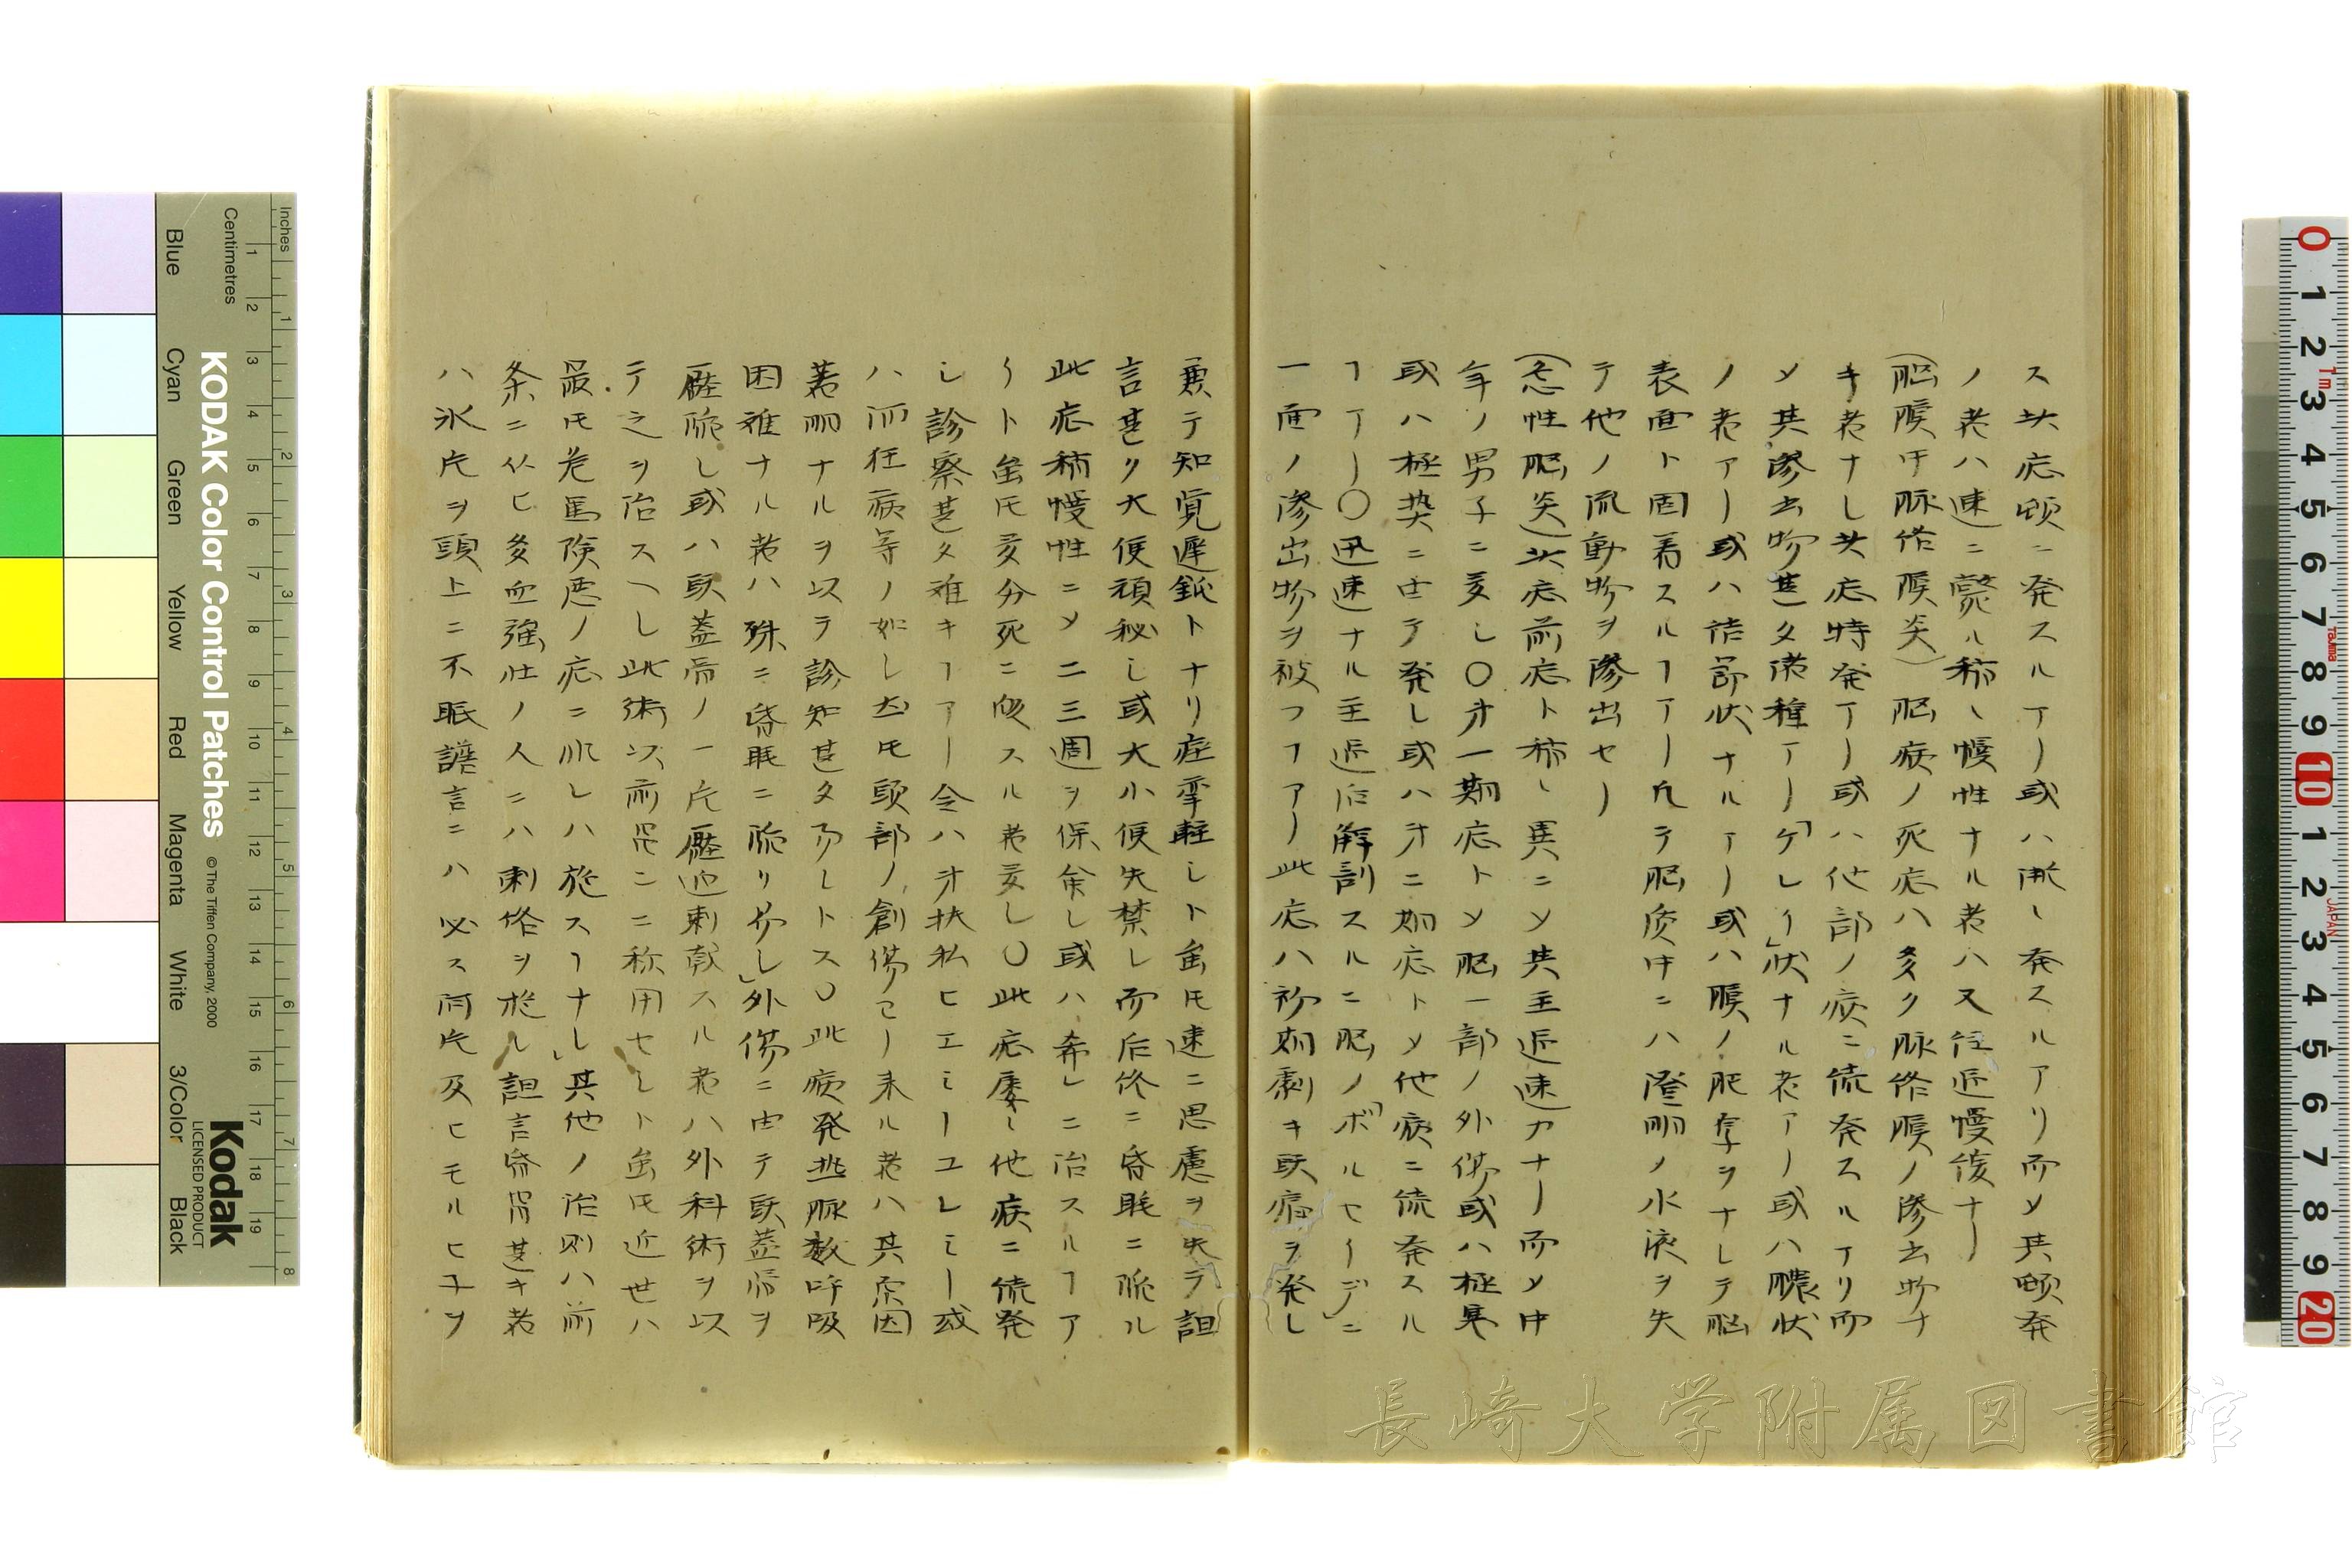 ス此症頓ニ発スルアリ或ハ漸々発スルアリ而メ其頓発
ノ者ハ速ニ斃ル稀ニ慢性ナル者ハ又経過慢緩ナリ
(脳膜中脉絡膜炎)脳病ノ死症ハ多ク脉絡膜ノ滲出物ナ
キ者ナし此症特発アリ或ハ他部ノ病ニ続発スルアリ而
メ其滲出物甚タ諸種アリ「ゲレイ」状ナル者アリ或ハ膿状
ノ者アリ或ハ結節状ナルアリ或ハ膜ノ肥厚ヲナレテ脳
表面ト固着スルヿアリ凡テ脳質中ニハ澄明ノ水液ヲ失
テ他ノ流動物ヲ滲出セリ
(急性脳炎)此症前症ト稀ニ異ニメ其主過速カナリ而メ中
年ノ男子ニ多し〇才一期症トメ脳一部ノ外傷或ハ極寒
或ハ極熱ニ由テ発し或ハ才二期症トメ他病ニ続発スル
ヿアリ〇迅速ナル主過后解剖スルニ脳ノ「ボルセーデ」ニ
一面ノ滲出物ヲ被フヿアリ此症ハ初期劇キ頭痛ヲ発し
兼テ知覚遅鈍トナリ痙攣軽しト雖氏速ニ思慮ヲ失ヲ詛
言甚タ大便頑秘し或大小便失禁し而后終ニ昏眠ニ陥ル
此症稀慢性ニメ二三週ヲ保余し或ハ希レニ治スルヿア
リト雖氏多分死ニ陥スル者多し〇此症屡々他病ニ続発
し診察甚タ難キヿアリ令ハ才扶私ヒエミーユレミー或
ハ而狂病等ノ如し然氏頭部ノ創傷ヨリ来ル者ハ其原因
著明ナルヲ以テ診知甚タ易しトス〇此病発挑脉数呼吸
困難ナル者ハ殊ニ昏眠ニ陥リ易し」外傷ニ由テ頭蓋骨ヲ
壓陥し或ハ頭蓋骨ノ一片壓迫刺戟スル者ハ外科術ヲ以
テ之ヲ治スヘし此術以前罕ニ称用セしト雖氏近世ハ
最氏危篤険悪ノ症ニ非レハ施スヿナし」其他ノ治則ハ前
条ニ仏ヒ多血強壮ノ人ニハ刺絡ヲ施し詛言昏冒甚キ者
ハ氷片ヲ頭上ニ不眠譫言ニハ必ス阿片及ヒモルヒ子ヲ
KODAK Color Control Patches
©The Tiffen Company, 2000
Kodak
LICENSED PRODUCT
Inches
Centimetres
Blue
Cyan
Green
Yellow
Red
Magenta
White
3/Color
Black
長崎大学附属図書館